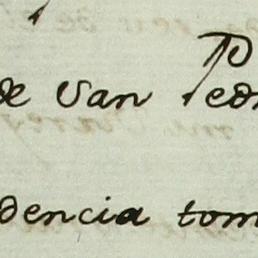 de San Ped
dencia tom